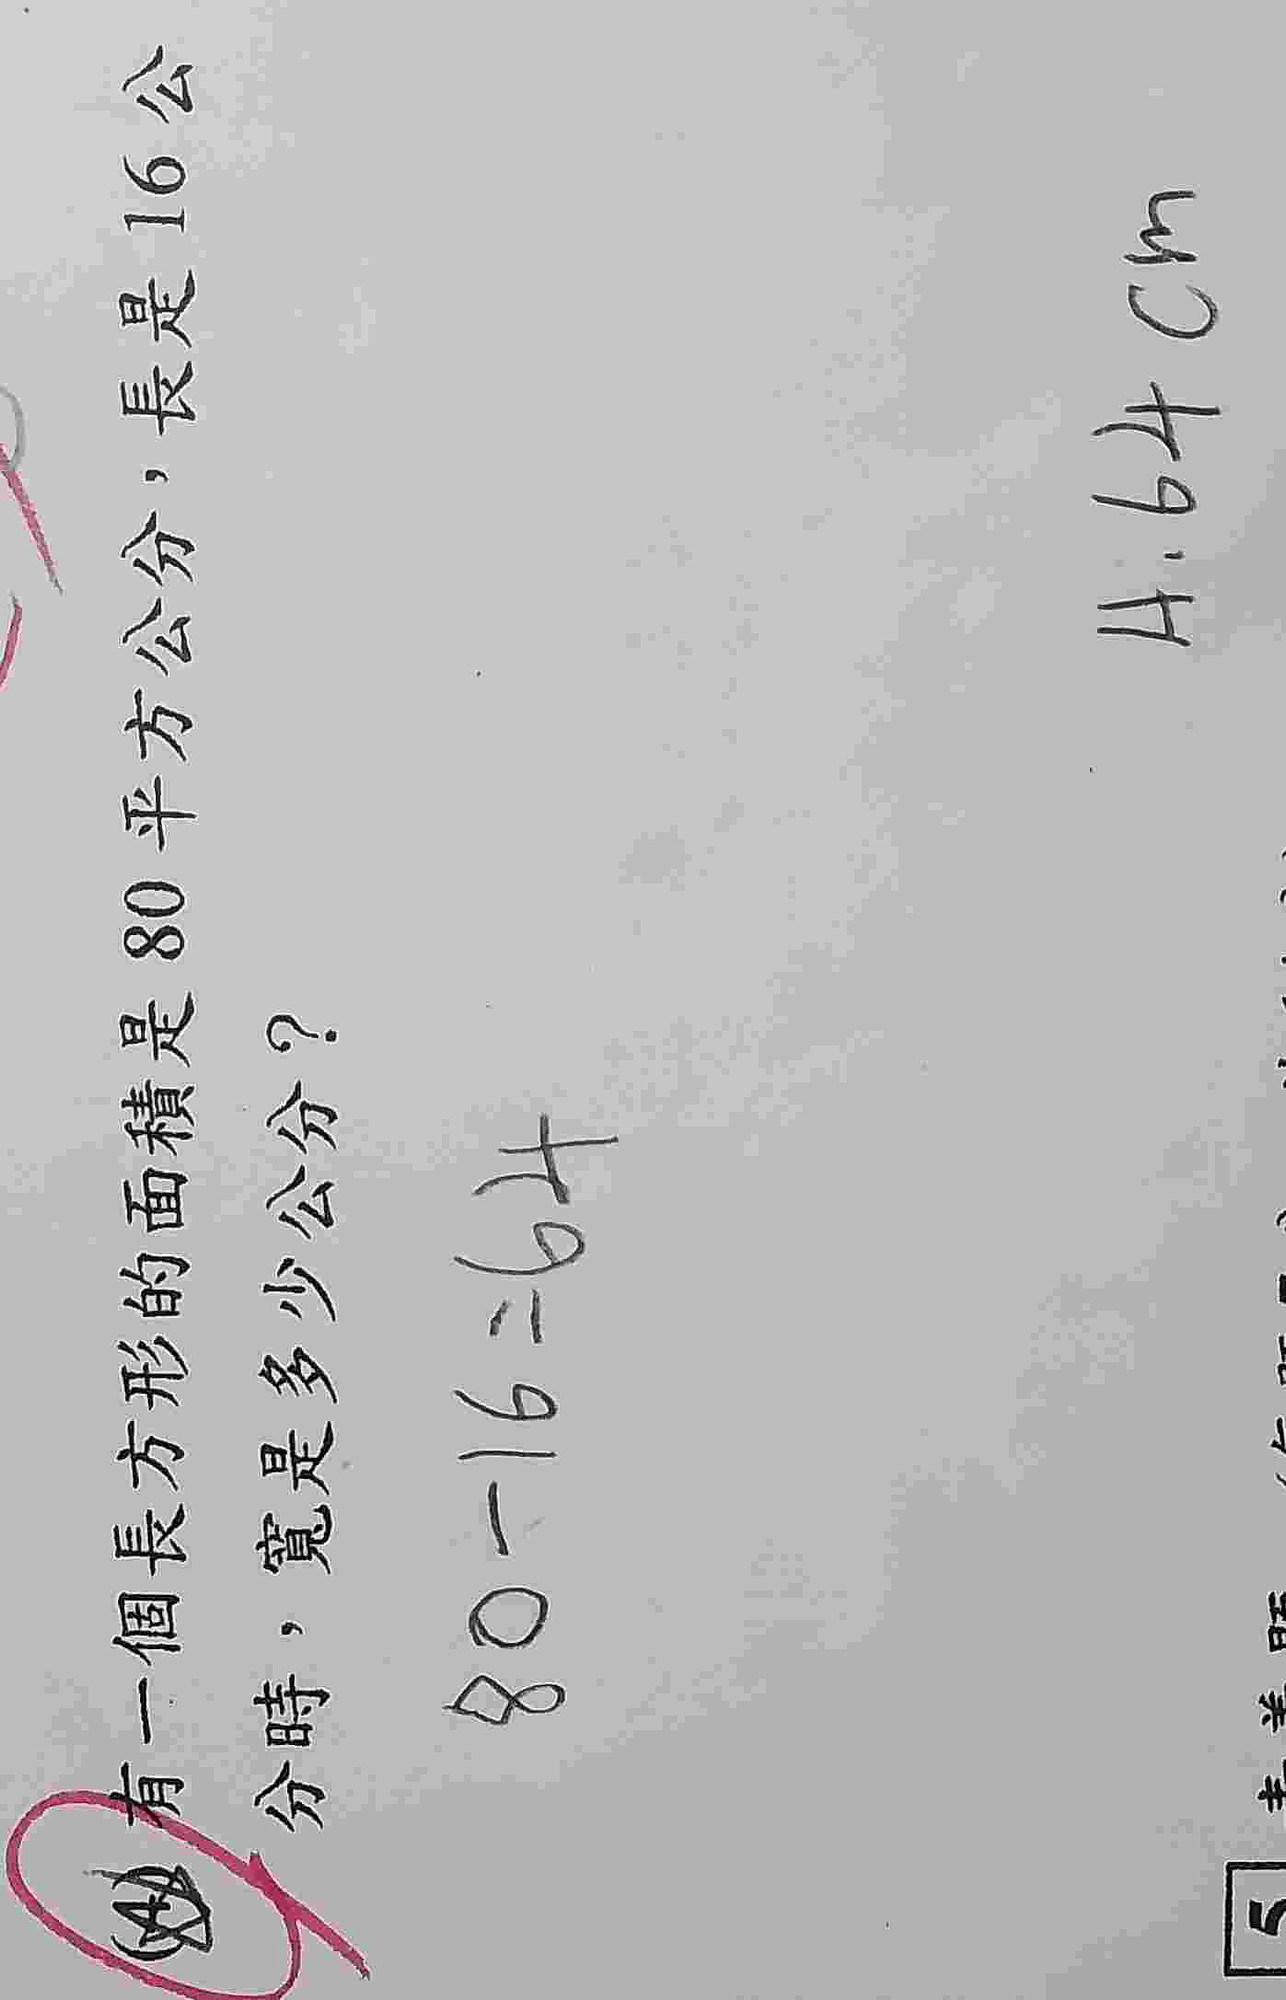 (4) 有一個長方形的面積是 80 平方公分，長是 16 公
分時，寬是多少公分？
80-16=64
A.64cm
5